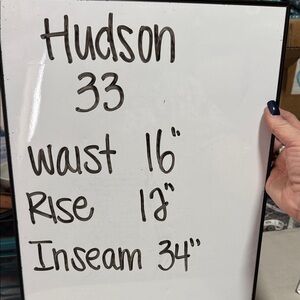 Hudson
33
Waist 16"
Rise 12"
Inseam 34"